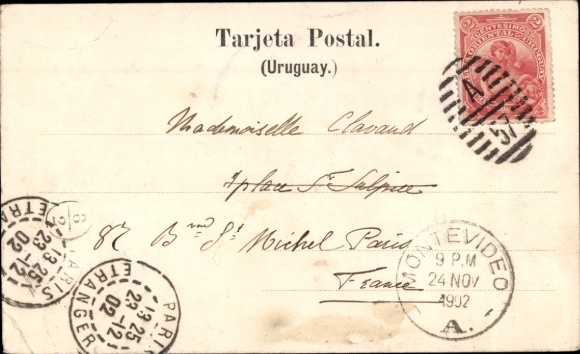 Tarjeta Postal.
(Uruguay.)
2 CENTESIMOS 2
ORIENTAL URUGUAY
A 57
Mademoiselle Clavaud
7 place St Sulpice
87 Bd St Michel Paris
France
MONTEVIDEO
9 P.M
24 NOV
1902
A.
PARIS
13 25
23-12
02
ETRANGER
PARIS
13 25
23-12
02
ETRANGER